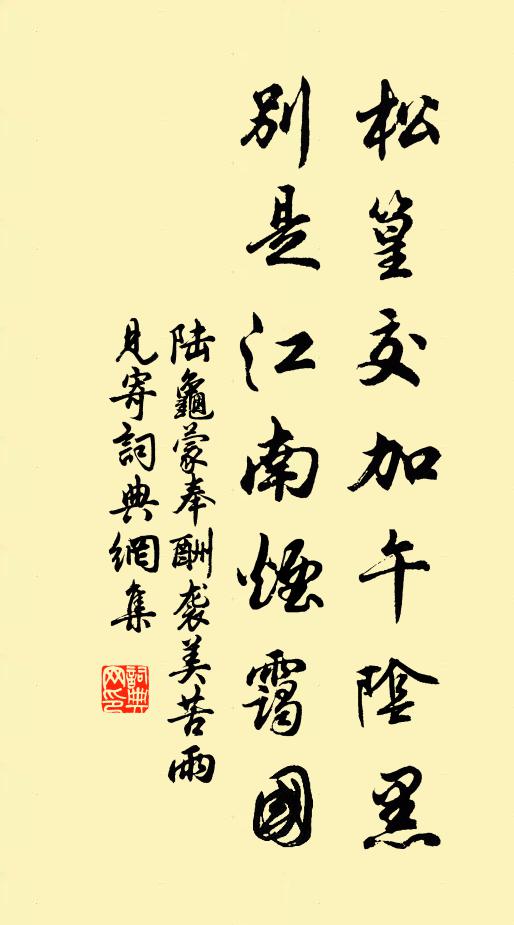 松篁交加午陰黑
別是江南煙靄國
陸龜蒙奉酬襲美苦雨
見寄詞典網集
詞典網印